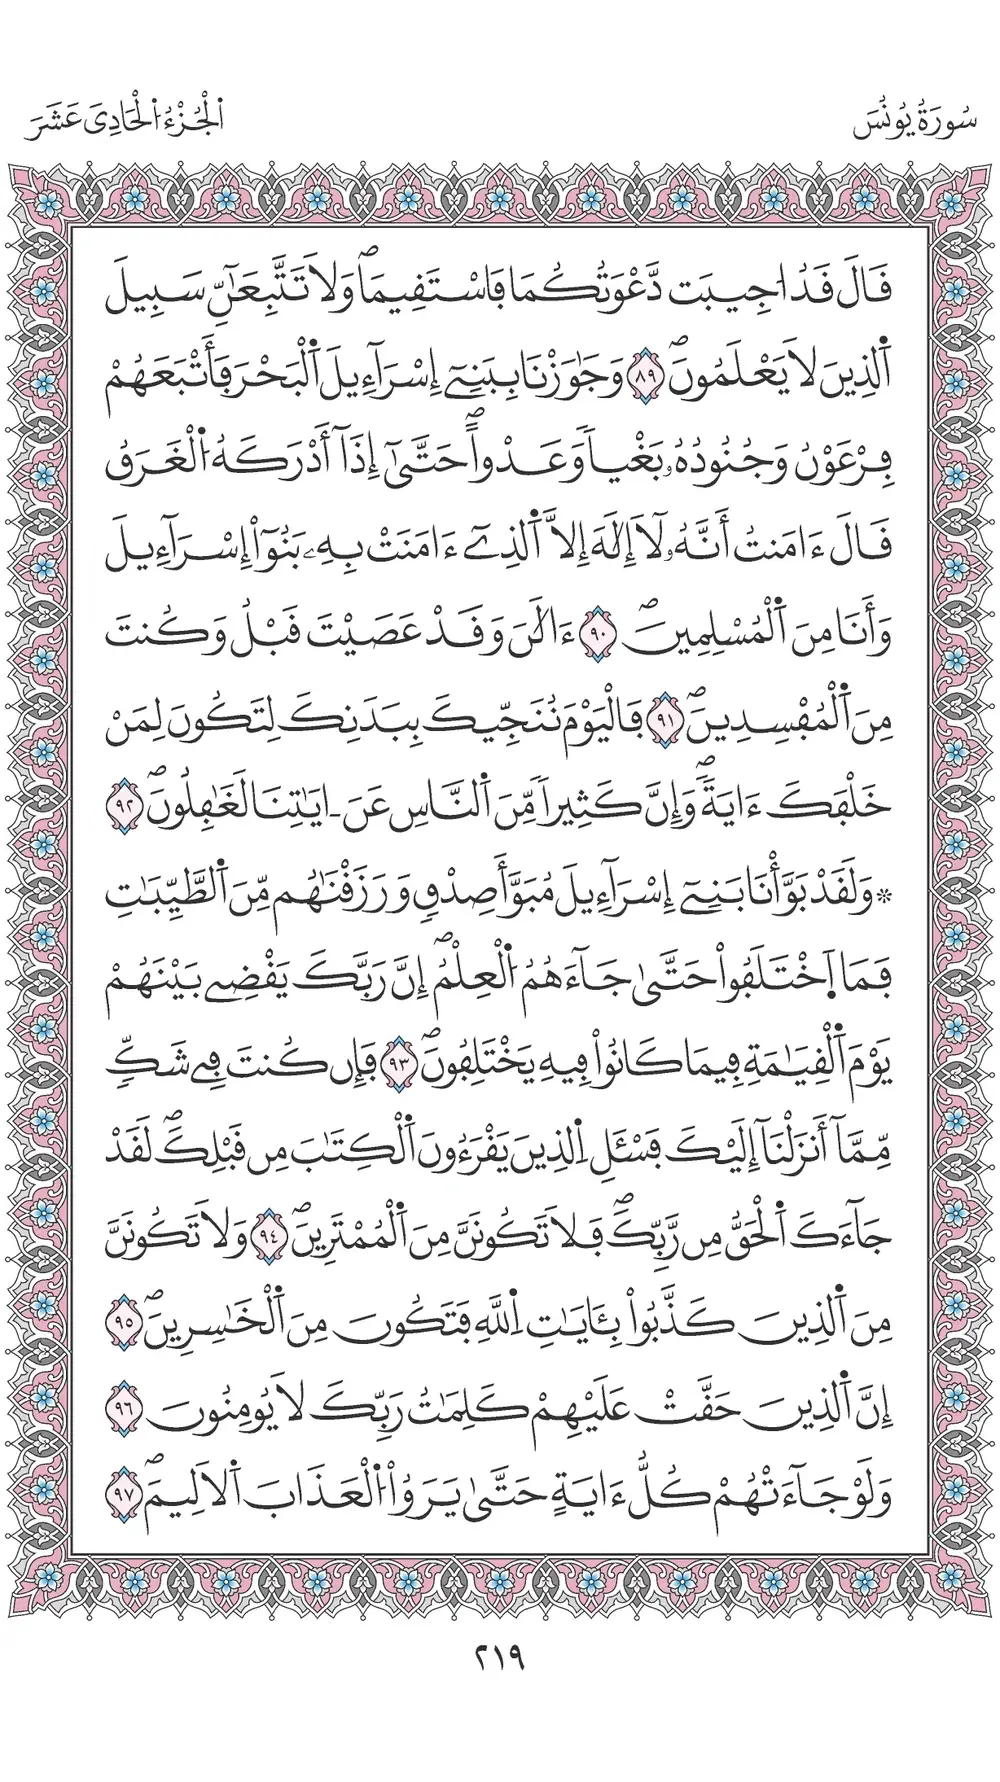 سُورَةُ يُونُسَ
اَلْجُزْءُ الْحَادِي عَشَرَ
قَالَ قَدُ ا۟جِيبَت دَّعْوَتُكُمَا فَاسْتَقِيمَاۖ وَلَا تَتَّبِعَٰٓنِّ سَبِيلَ
اَ۬لذِينَ لَا يَعْلَمُونَۖ ٨٩ وَجَٰوَزْنَا بِبَنِےٓ إِسْرَآءِيلَ اَ۬لْبَحْرَ فَأَتْبَعَهُمْ
فِرْعَوْنُ وَجُنُودُهُۥ بَغْياٗ وَعَدْواًۖ حَتَّىٰٓ إِذَآ أَدْرَكَهُ اُ۬لْغَرَقُ
قَالَ ءَامَنتُ أَنَّهُۥ لَآ إِلَٰهَ إِلَّا اَ۬لذِےٓ ءَامَنَتْ بِهِۦ بَنُوٓاْ إِسْرَآءِيلَ
وَأَنَا مِنَ اَ۬لْمُسْلِمِينَۖ ٩٠ ءَآلَٰنَ وَقَدْ عَصَيْتَ قَبْلُ وَكُنتَ
مِنَ اَ۬لْمُفْسِدِينَۖ ٩١ فَالْيَوْمَ نُنَجِّيكَ بِبَدَنِكَ لِتَكُونَ لِمَنْ
خَلْفَكَ ءَايَةٗۖ وَإِنَّ كَثِيراٗ مِّنَ اَ۬لنَّاسِ عَنَ اٰيَٰتِنَا لَغَٰفِلُونَۖ ٩٢
۞وَلَقَدْ بَوَّأْنَا بَنِےٓ إِسْرَآءِيلَ مُبَوَّأَ صِدْقٖ وَرَزَقْنَٰهُم مِّنَ اَ۬لطَّيِّبَٰتِ
فَمَا اَ۪خْتَلَفُواْ حَتَّىٰ جَآءَهُمُ اُ۬لْعِلْمُۖ إِنَّ رَبَّكَ يَقْضِے بَيْنَهُمْ
يَوْمَ اَ۬لْقِيَٰمَةِ فِيمَا كَانُواْ فِيهِ يَخْتَلِفُونَۖ ٩٣ فَإِن كُنتَ فِے شَكّٖ
مِّمَّآ أَنزَلْنَآ إِلَيْكَ فَسْـَٔلِ اِ۬لذِينَ يَقْرَءُونَ اَ۬لْكِتَٰبَ مِن قَبْلِكَۖ لَقَدْ
جَآءَكَ اَ۬لْحَقُّ مِن رَّبِّكَۖ فَلَا تَكُونَنَّ مِنَ اَ۬لْمُمْتَرِينَۖ ٩٤ وَلَا تَكُونَنَّ
مِنَ اَ۬لذِينَ كَذَّبُواْ بِـَٔايَٰتِ اِ۬للَّهِ فَتَكُونَ مِنَ اَ۬لْخَٰسِرِينَۖ ٩٥
إِنَّ اَ۬لذِينَ حَقَّتْ عَلَيْهِمْ كَلِمَٰتُ رَبِّكَ لَا يُومِنُونَ ٩٦
وَلَوْ جَآءَتْهُمْ كُلُّ ءَايَةٍ حَتَّىٰ يَرَوُاْ اُ۬لْعَذَابَ اَ۬لَالِيمَۖ ٩٧
٢١٩